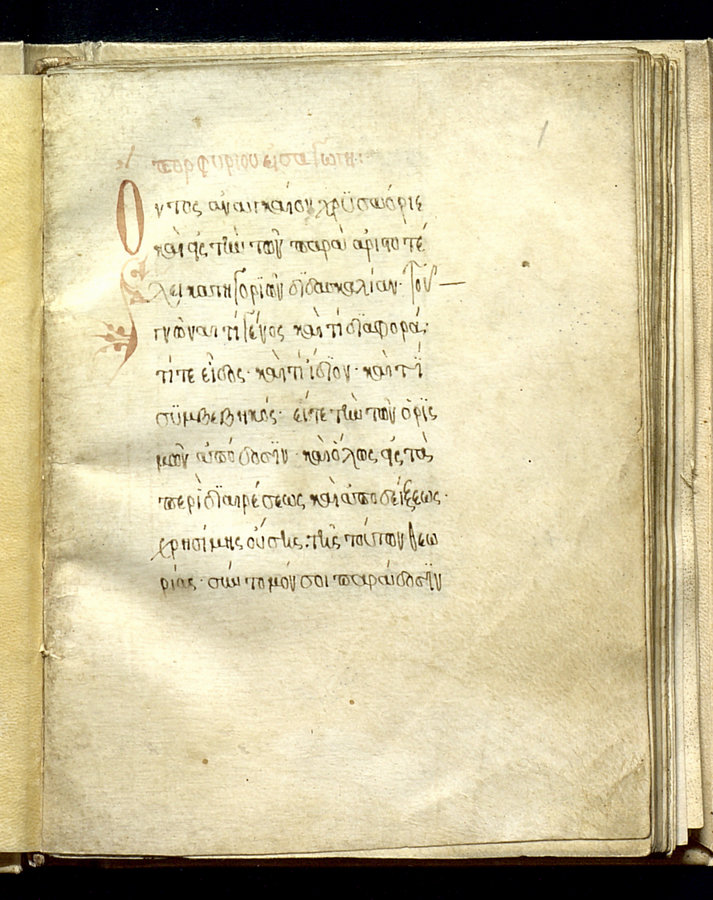 1
πορφυρίου εἰσαγωγή:
Οντος αναγκαίου χρϋσαόριε
καὶ εἰς τὴν τῶν παρὰ ἀριστοτέ
λει κατηγοριῶν διδασκαλίαν· τοῦ
γνῶναι τί γένος καὶ τί διαφορά·
τί τε εἶδος· καὶ τί ἴδϊον· καὶ τϊ
σϋμβεβηκός· εἴς τε τὴν τῶν ὁρϊσ
μῶν ἀπόδοσϊν· καὶ ὅλως εἰς τὰ
περὶ διαιρέσεως καὶ ἀποδείξεως·
χρησίμης οὔσης· τῆς τούτων θεω
ρίας· σύντομόν σοι παράδοσϊν